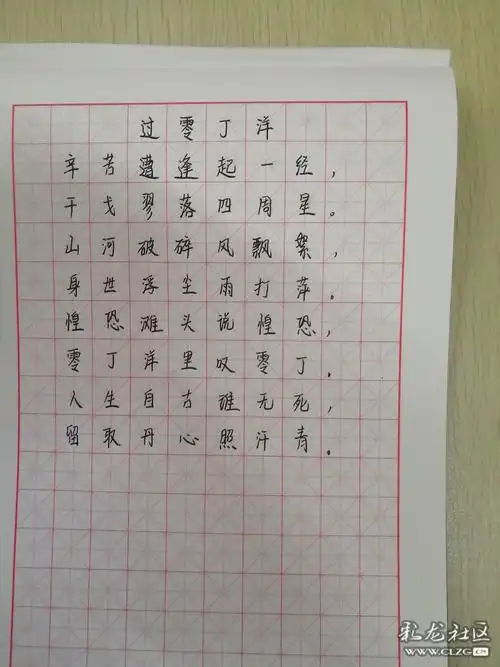 过零丁洋
辛苦遭逢起一经，
干戈寥落四周星。
山河破碎风飘絮，
身世浮尘雨打萍。
惶恐滩头说惶恐，
零丁洋里叹零丁。
人生自古谁无死，
留取丹心照汗青。
彩龙社区
www.CLZG.cn